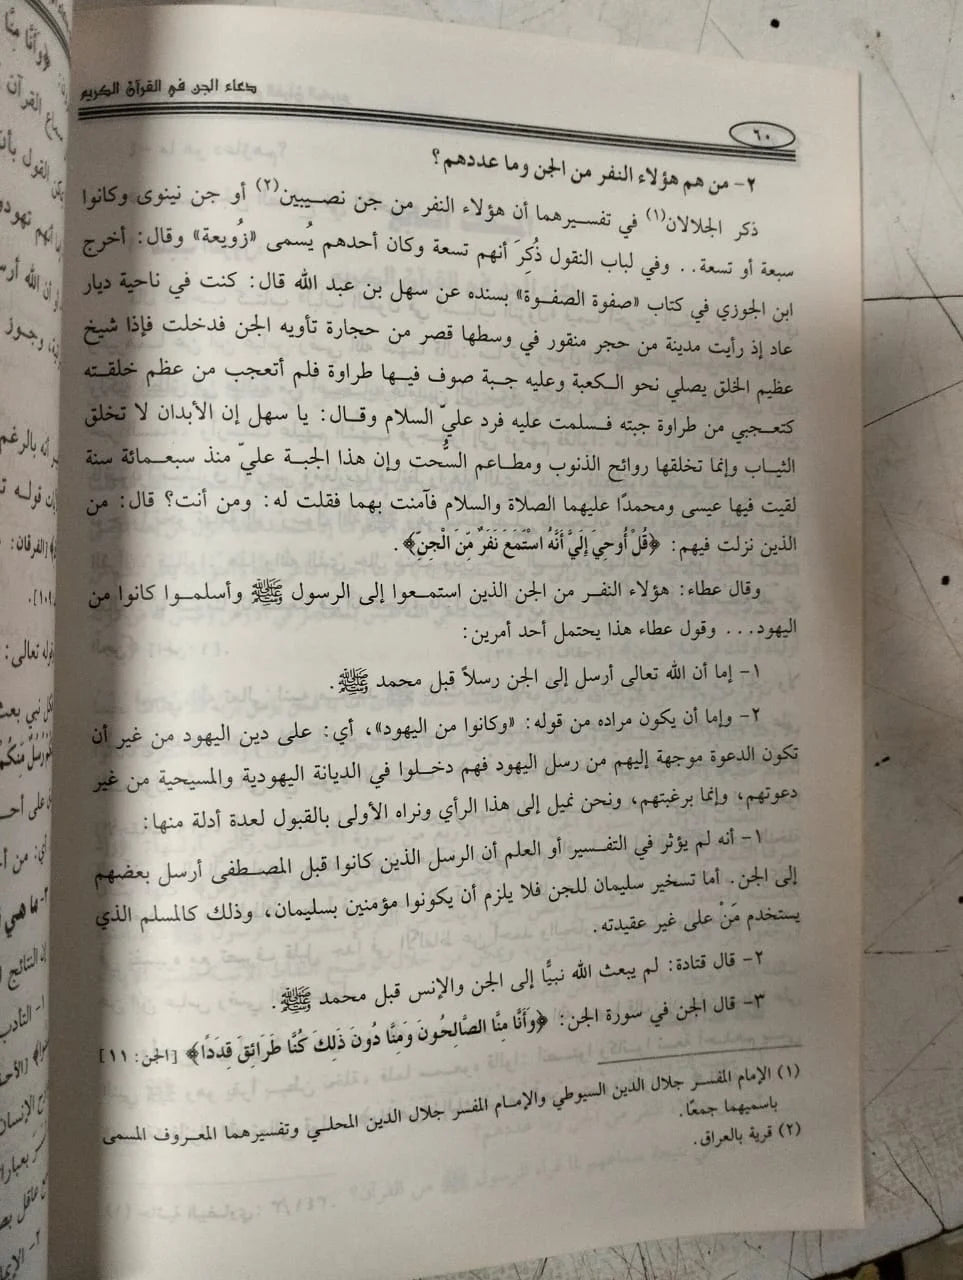 دعاء الجن في القرآن الكريم
٦٠
٢- من هم هؤلاء النفر من الجن وما عددهم؟
ذكر الجلالان(١) في تفسيرهما أن هؤلاء النفر من جن نصيبين(٢) أو جن نينوى وكانوا
سبعة أو تسعة.. وفي لباب النقول ذُكِرَ أنهم تسعة وكان أحدهم يُسمى «زُويعة» وقال: أخرج
ابن الجوزي في كتاب «صفوة الصفوة» بسنده عن سهل بن عبد الله قال: كنت في ناحية ديار
عاد إذ رأيت مدينة من حجر منقور في وسطها قصر من حجارة تأويه الجن فدخلت فإذا شيخ
عظيم الخلق يصلي نحو الكعبة وعليه جبة صوف فيها طراوة فلم أتعجب من عظم خلقته
كتعجبي من طراوة جبته فسلمت عليه فرد عليّ السلام وقال: يا سهل إن الأبدان لا تخلق
الثياب وإنما تخلقها روائح الذنوب ومطاعم السُّحت وإن هذا الجبة عليّ منذ سبعمائة سنة
لقيت فيها عيسى ومحمدًا عليهما الصلاة والسلام فآمنت بهما فقلت له: ومن أنت؟ قال: من
الذين نزلت فيهم: ﴿قُلْ أُوحِيَ إِلَيَّ أَنَّهُ اسْتَمَعَ نَفَرٌ مِّنَ الْجِنِّ﴾.
وقال عطاء: هؤلاء النفر من الجن الذين استمعوا إلى الرسول ﷺ وأسلموا كانوا من
اليهود... وقول عطاء هذا يحتمل أحد أمرين:
١- إما أن الله تعالى أرسل إلى الجن رسلاً قبل محمد ﷺ.
٢- وإما أن يكون مراده من قوله: «وكانوا من اليهود»، أي: على دين اليهود من غير أن
تكون الدعوة موجهة إليهم من رسل اليهود فهم دخلوا في الديانة اليهودية والمسيحية من غير
دعوتهم، وإنما برغبتهم، ونحن نميل إلى هذا الرأي ونراه الأولى بالقبول لعدة أدلة منها:
١- أنه لم يؤثر في التفسير أو العلم أن الرسل الذين كانوا قبل المصطفى أرسل بعضهم
إلى الجن. أما تسخير سليمان للجن فلا يلزم أن يكونوا مؤمنين بسليمان، وذلك كالمسلم الذي
يستخدم مَنْ على غير عقيدته.
٢- قال قتادة: لم يبعث الله نبيًّا إلى الجن والإنس قبل محمد ﷺ.
٣- قال الجن في سورة الجن: ﴿وَأَنَّا مِنَّا الصَّالِحُونَ وَمِنَّا دُونَ ذَلِكَ كُنَّا طَرَائِقَ قِدَدًا﴾ [الجن: ١١]
(١) الإمام المفسر جلال الدين السيوطي والإمام المفسر جلال الدين المحلي وتفسيرهما المعروف المسمى
باسميهما جمعًا.
(٢) قرية بالعراق.